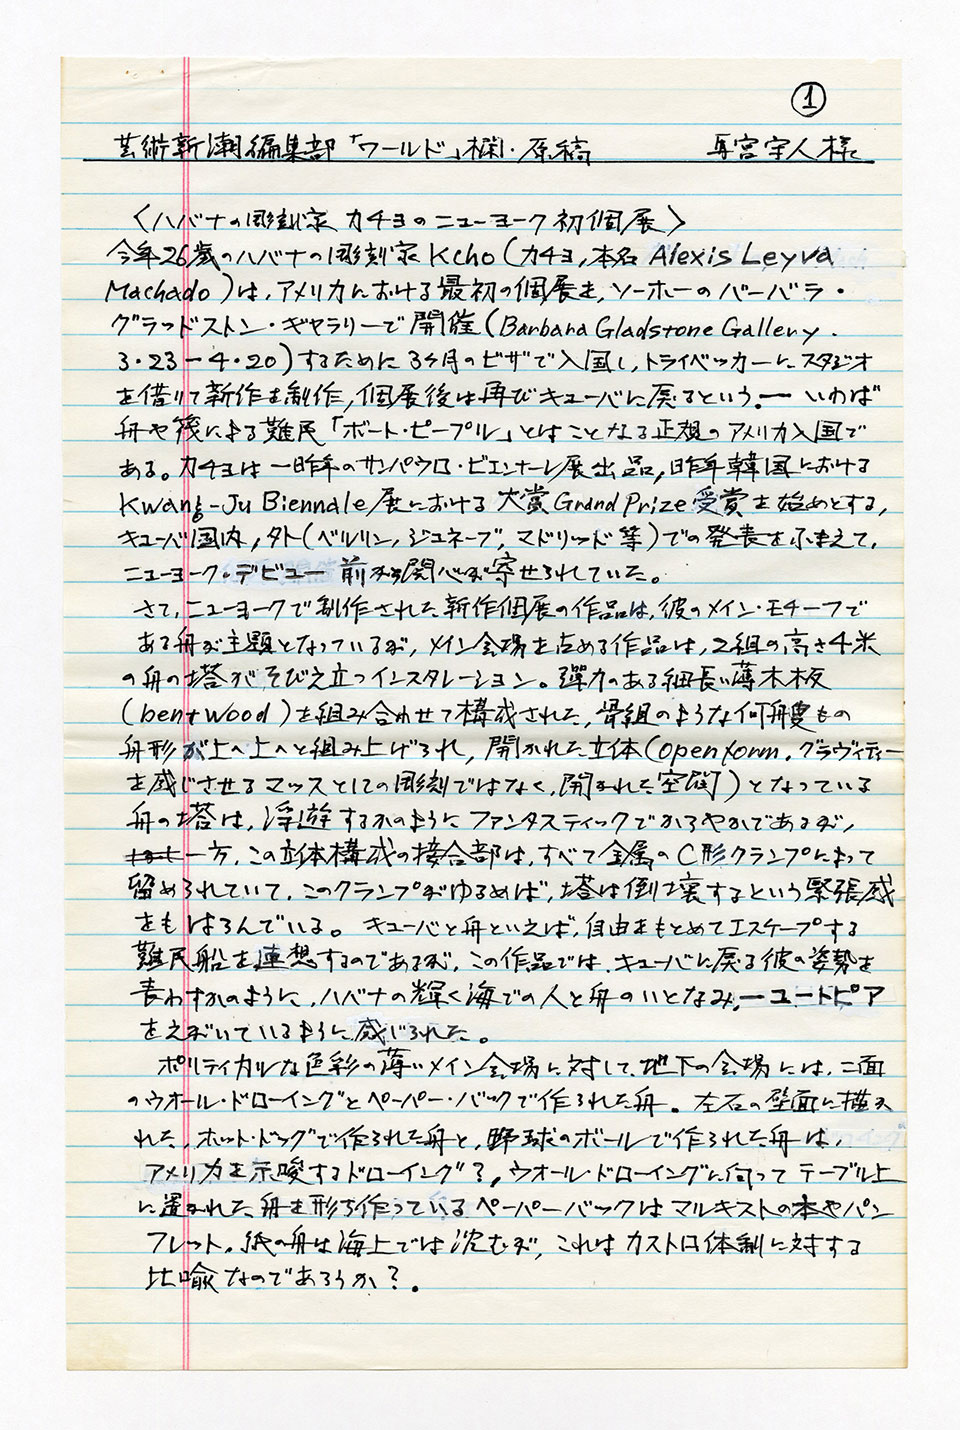 ①
芸術新潮編集部「ワールド」欄・原稿 馬宮宇人様
〈ハバナの彫刻家 カチョのニューヨーク初個展〉
今年26歳のハバナの彫刻家Kcho(カチョ,本名 Alexis Leyva
Machado)は,アメリカにおける最初の個展を,ソーホーのバーバラ・
グラッドストン・ギャラリーで開催(Barbara Gladstone Gallery.
3・23ー4・20)するために3ヶ月のビザで入国し,トライベッカーにスタジオ
を借りて新作を制作,個展後は再びキューバに戻るという.ー いわば
舟や筏による難民「ボート・ピープル」とはことなる正規のアメリカ入国で
ある。カチョは一昨年のサンパウロ・ビエンナーレ展出品,昨年韓国における
Kwang-Ju Biennale展における大賞Grand Prize受賞を始めとする,
キューバ国内,外(ベルリン,ジュネーブ,マドリッド等)での発表をふまえて,
ニューヨーク・デビュー前から関心が寄せられていた。
さて,ニューヨークで制作された新作個展の作品は,彼のメイン・モチーフで
ある舟が主題となっているが,メイン会場を占める作品は,2組の高さ4米
の舟の塔がそびえ立つインスタレーション。弾力のある細長い薄木板
(bent wood)を組み合わせて構成された,骨組のような何艘もの
舟形が上へ上へと組み上げられ,開かれた立体(open form.グラヴィティー
を感じさせるマッスとしての彫刻ではなく,開かれた空間)となっている
舟の塔は,浮遊するかのようにファンタスティックでかろやかであるが,
一方,この立体構成の接合部は,すべて金属のC形クランプによって
留められていて.このクランプがゆるめば,塔は倒壊するという緊張感
をもはらんでいる。 キューバと舟といえば,自由をもとめてエスケープする
難民船を連想するのであるが,この作品では、キューバに戻る彼の姿勢を
表わすかのように,ハバナの輝く海での人と舟のいとなみ,ーユートピア
をえがいているように感じられた。
ポリティカルな色彩の薄いメイン会場に対して,地下の会場には,二面
のウオール・ドローイングとペーパー・バックで作られた舟。左右の壁面に描か
れた,ホット・ドッグで作られた舟と,野球のボールで作られた舟は,
アメリカを示唆するドローイング?,ウオール・ドローイングに向ってテーブル上
に置かれた,舟を形ち作っているペーパーバックはマルキストの本やパン
フレット.紙の舟は海上では沈むが,これはカストロ体制に対する
比喩なのであろうか?.